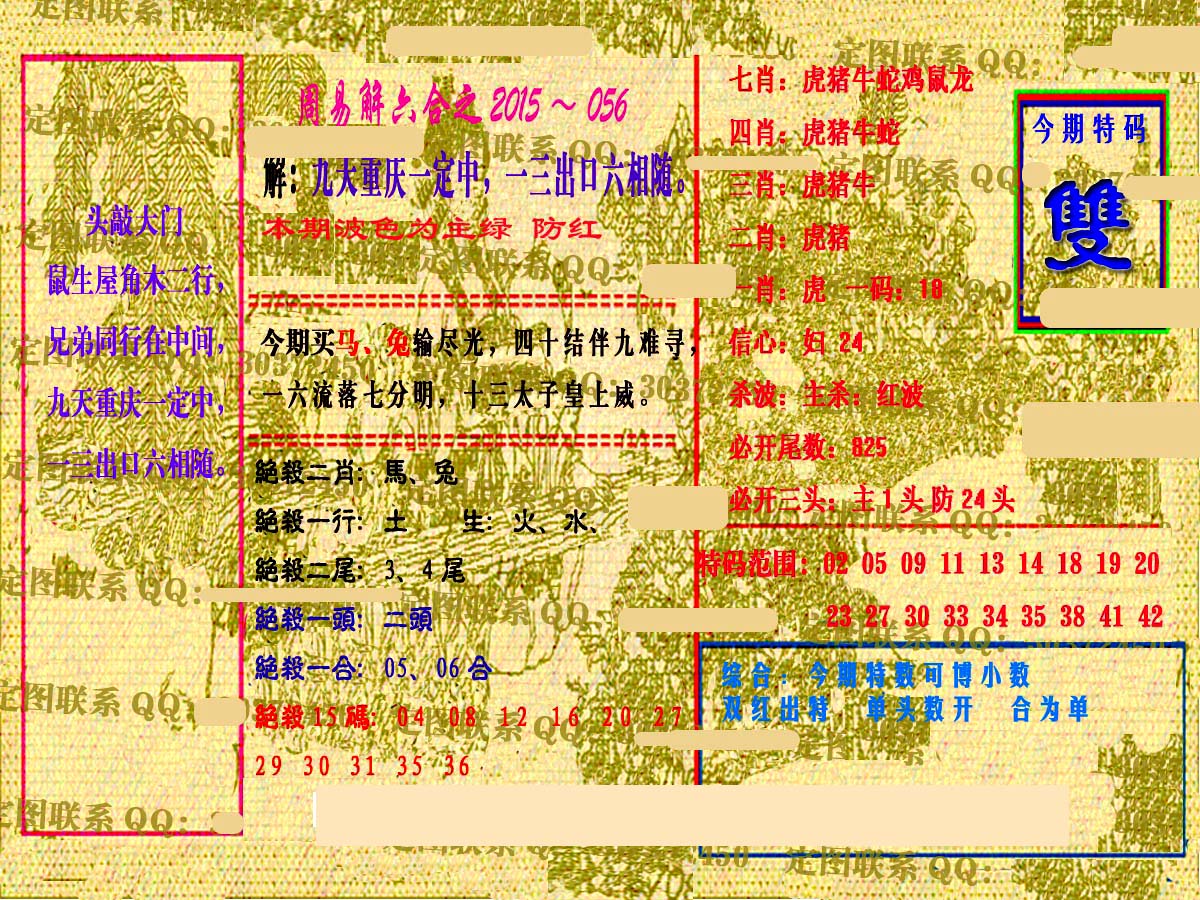 头敲大门
鼠生屋角木二行，
兄弟同行在中间，
九天重庆一定中，
一三出口六相随。
周易解六合之 2015～056
解：九天重庆一定中，一三出口六相随。
本期波色为主绿 防红
今期买马、兔输尽光，四十结伴九难寻，
一六流落七分明，十三太子皇上威。
絕殺二肖：馬、兔
絕殺一行：土 生：火、水、
絕殺二尾：3、4 尾
絕殺一頭：二頭
絕殺一合：05、06 合
絕殺 15 碼：04 08 12 16 20 27
29 30 31 35 36
七肖：虎猪牛蛇鸡鼠龙
四肖：虎猪牛蛇
三肖：虎猪牛
二肖：虎猪
一肖：虎 一码：18
信心：妇 24
杀波：主杀：红波
必开尾数：825
必开三头：主 1 头 防 24 头
今期特码
雙
特码范围：02 05 09 11 13 14 18 19 20
23 27 30 33 34 35 38 41 42
综合：今期特数可博小数
双红出特 单头数开 合为单
定图联系 QQ：